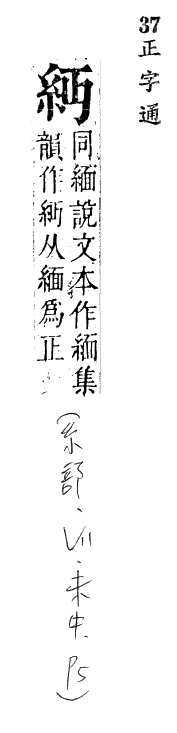 37 正字通
䋛
同緬說文本作緬集
韻作䋛从緬為正
(糸部、VII、未中、P5)